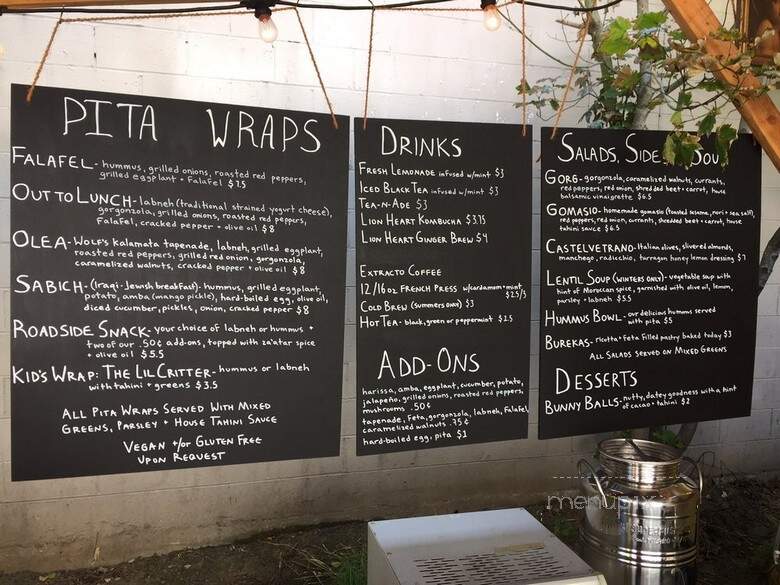 PITA WRAPS
FALAFEL - hummus, grilled onions, roasted red peppers,
grilled eggplant + Falafel $7.5
OUT TO LUNCH - labneh (traditional strained yogurt cheese),
gorgonzola, grilled onions, roasted red peppers,
Falafel, cracked pepper + olive oil $8
OLEA - Wolf's kalamata tapenade, labneh, grilled eggplant,
roasted red peppers, grilled red onion, gorgonzola,
caramelized walnuts, cracked pepper + olive oil $8
SABICH - (Iraqi-Jewish breakfast) - hummus, grilled eggplant,
potato, amba (mango pickle), hard-boiled egg, olive oil,
diced cucumber, pickles, onion, cracked pepper $8
ROADSIDE SNACK - your choice of labneh or hummus +
two of our .50¢ add-ons, topped with za'atar spice
+ olive oil $5.5
KID'S WRAP: THE LIL CRITTER - hummus or labneh
with tahini + greens $3.5
ALL PITA WRAPS SERVED WITH MIXED
GREENS, PARSLEY + HOUSE TAHINI SAUCE
VEGAN +/or GLUTEN FREE
UPON REQUEST
DRINKS
FRESH LEMONADE infused w/mint $3
ICED BLACK TEA infused w/mint $3
TEA-N-ADE $3
LION HEART KOMBUCHA $3.75
LION HEART GINGER BREW $4
EXTRACTO COFFEE
12/16oz FRENCH PRESS w/cardamom + mint
$2.5/3
COLD BREW (SUMMERS ONLY) $3
HOT TEA - black, green or peppermint $2.5
ADD-ONS
harissa, amba, eggplant, cucumber, potato,
jalapeño, grilled onions, roasted red peppers,
mushrooms .50¢
tapenade, Feta, gorgonzola, labneh, Falafel,
caramelized walnuts .75¢
hard-boiled egg, pita $1
SALADS, SIDES SOUP
GORG - gorgonzola, caramelized walnuts, currants,
red peppers, red onion, shredded beet + carrot, house
balsamic vinaigrette $6.5
GOMASIO - homemade gomasio (toasted sesame, nori + sea salt),
red peppers, red onion, currants, shredded beet + carrot, house
tahini sauce $6.5
CASTELVETRANO - Italian olives, slivered almonds,
manchego, radicchio, tarragon honey lemon dressing $7
LENTIL SOUP (WINTERS ONLY) - vegetable soup with
hint of Moroccan spice, garnished with olive oil, lemon,
parsley + labneh $5.5
HUMMUS BOWL - our delicious hummus served
with pita $5
BUREKAS - ricotta + Feta filled pastry baked today $3
ALL SALADS SERVED ON MIXED GREENS
DESSERTS
BUNNY BALLS - nutty, datey goodness with a hint
of cacao + tahini $2
menupix